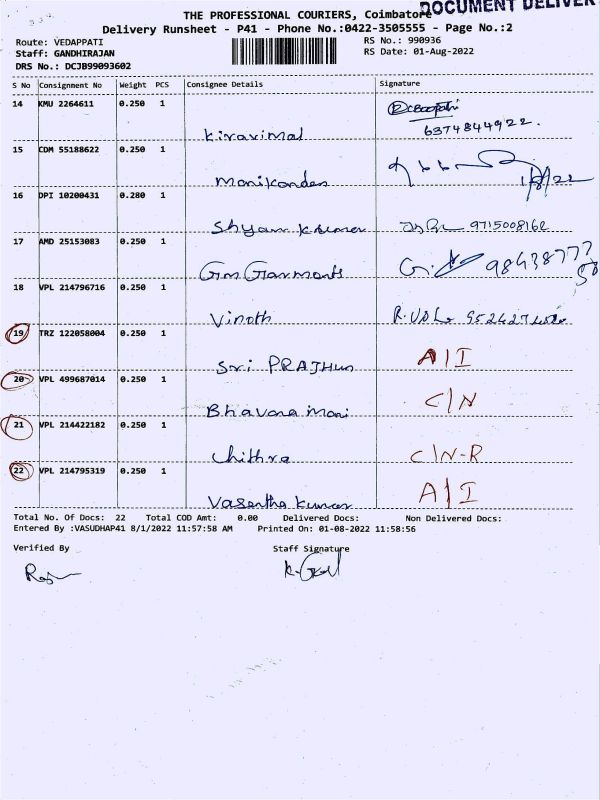 DOCUMENT DELIVER
THE PROFESSIONAL COURIERS, Coimbatore
Delivery Runsheet - P41 - Phone No.:0422-3505555 - Page No.:2
Route: VEDAPPATI RS No.: 990936
Staff: GANDHIRAJAN RS Date: 01-Aug-2022
DRS No.: DCJB99093602
S No Consignment No Weight PCS Consignee Details Signature
14 KMU 2264611 0.250 1
Kiravimal 6374844922.
15 CDM 55188622 0.250 1
Manikanden 1/8/22
16 DPI 10200431 0.280 1
Shyam Kumar 9715008162
17 AMD 25153083 0.250 1
Gm Garments 98438777
50
18 VPL 214796716 0.250 1
Vinoth
19 TRZ 122058004 0.250 1
Sri PRAJHUN A/I
20 VPL 499687014 0.250 1
Bhavana Mani C/N
21 VPL 214422182 0.250 1
Chithra C/N-R
22 VPL 214795319 0.250 1
Vasantha Kumar A/I
Total No. Of Docs: 22 Total COD Amt: 0.00 Delivered Docs: Non Delivered Docs:
Entered By :VASUDHAP41 8/1/2022 11:57:58 AM Printed On: 01-08-2022 11:58:56
Verified By Staff Signature